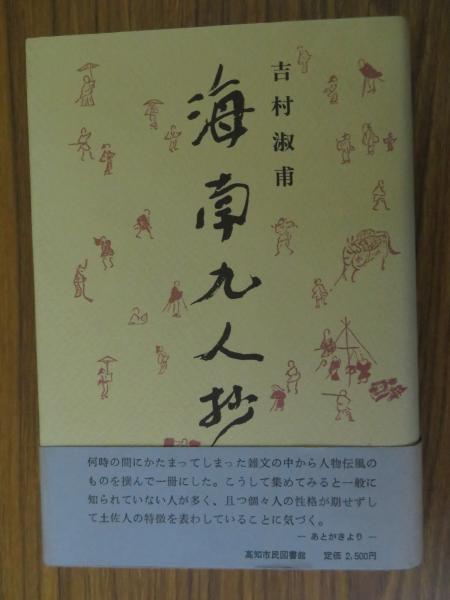 吉村淑甫
海南九人抄
何時の間にかたまってしまった雑文の中から人物伝風の
ものを撰んで一冊にした。こうして集めてみると一般に
知られていない人が多く、且つ個々人の性格が期せずし
て土佐人の特徴を表わしていることに気づく。
― あとがきより ―
高知市民図書館 定価 2,500円